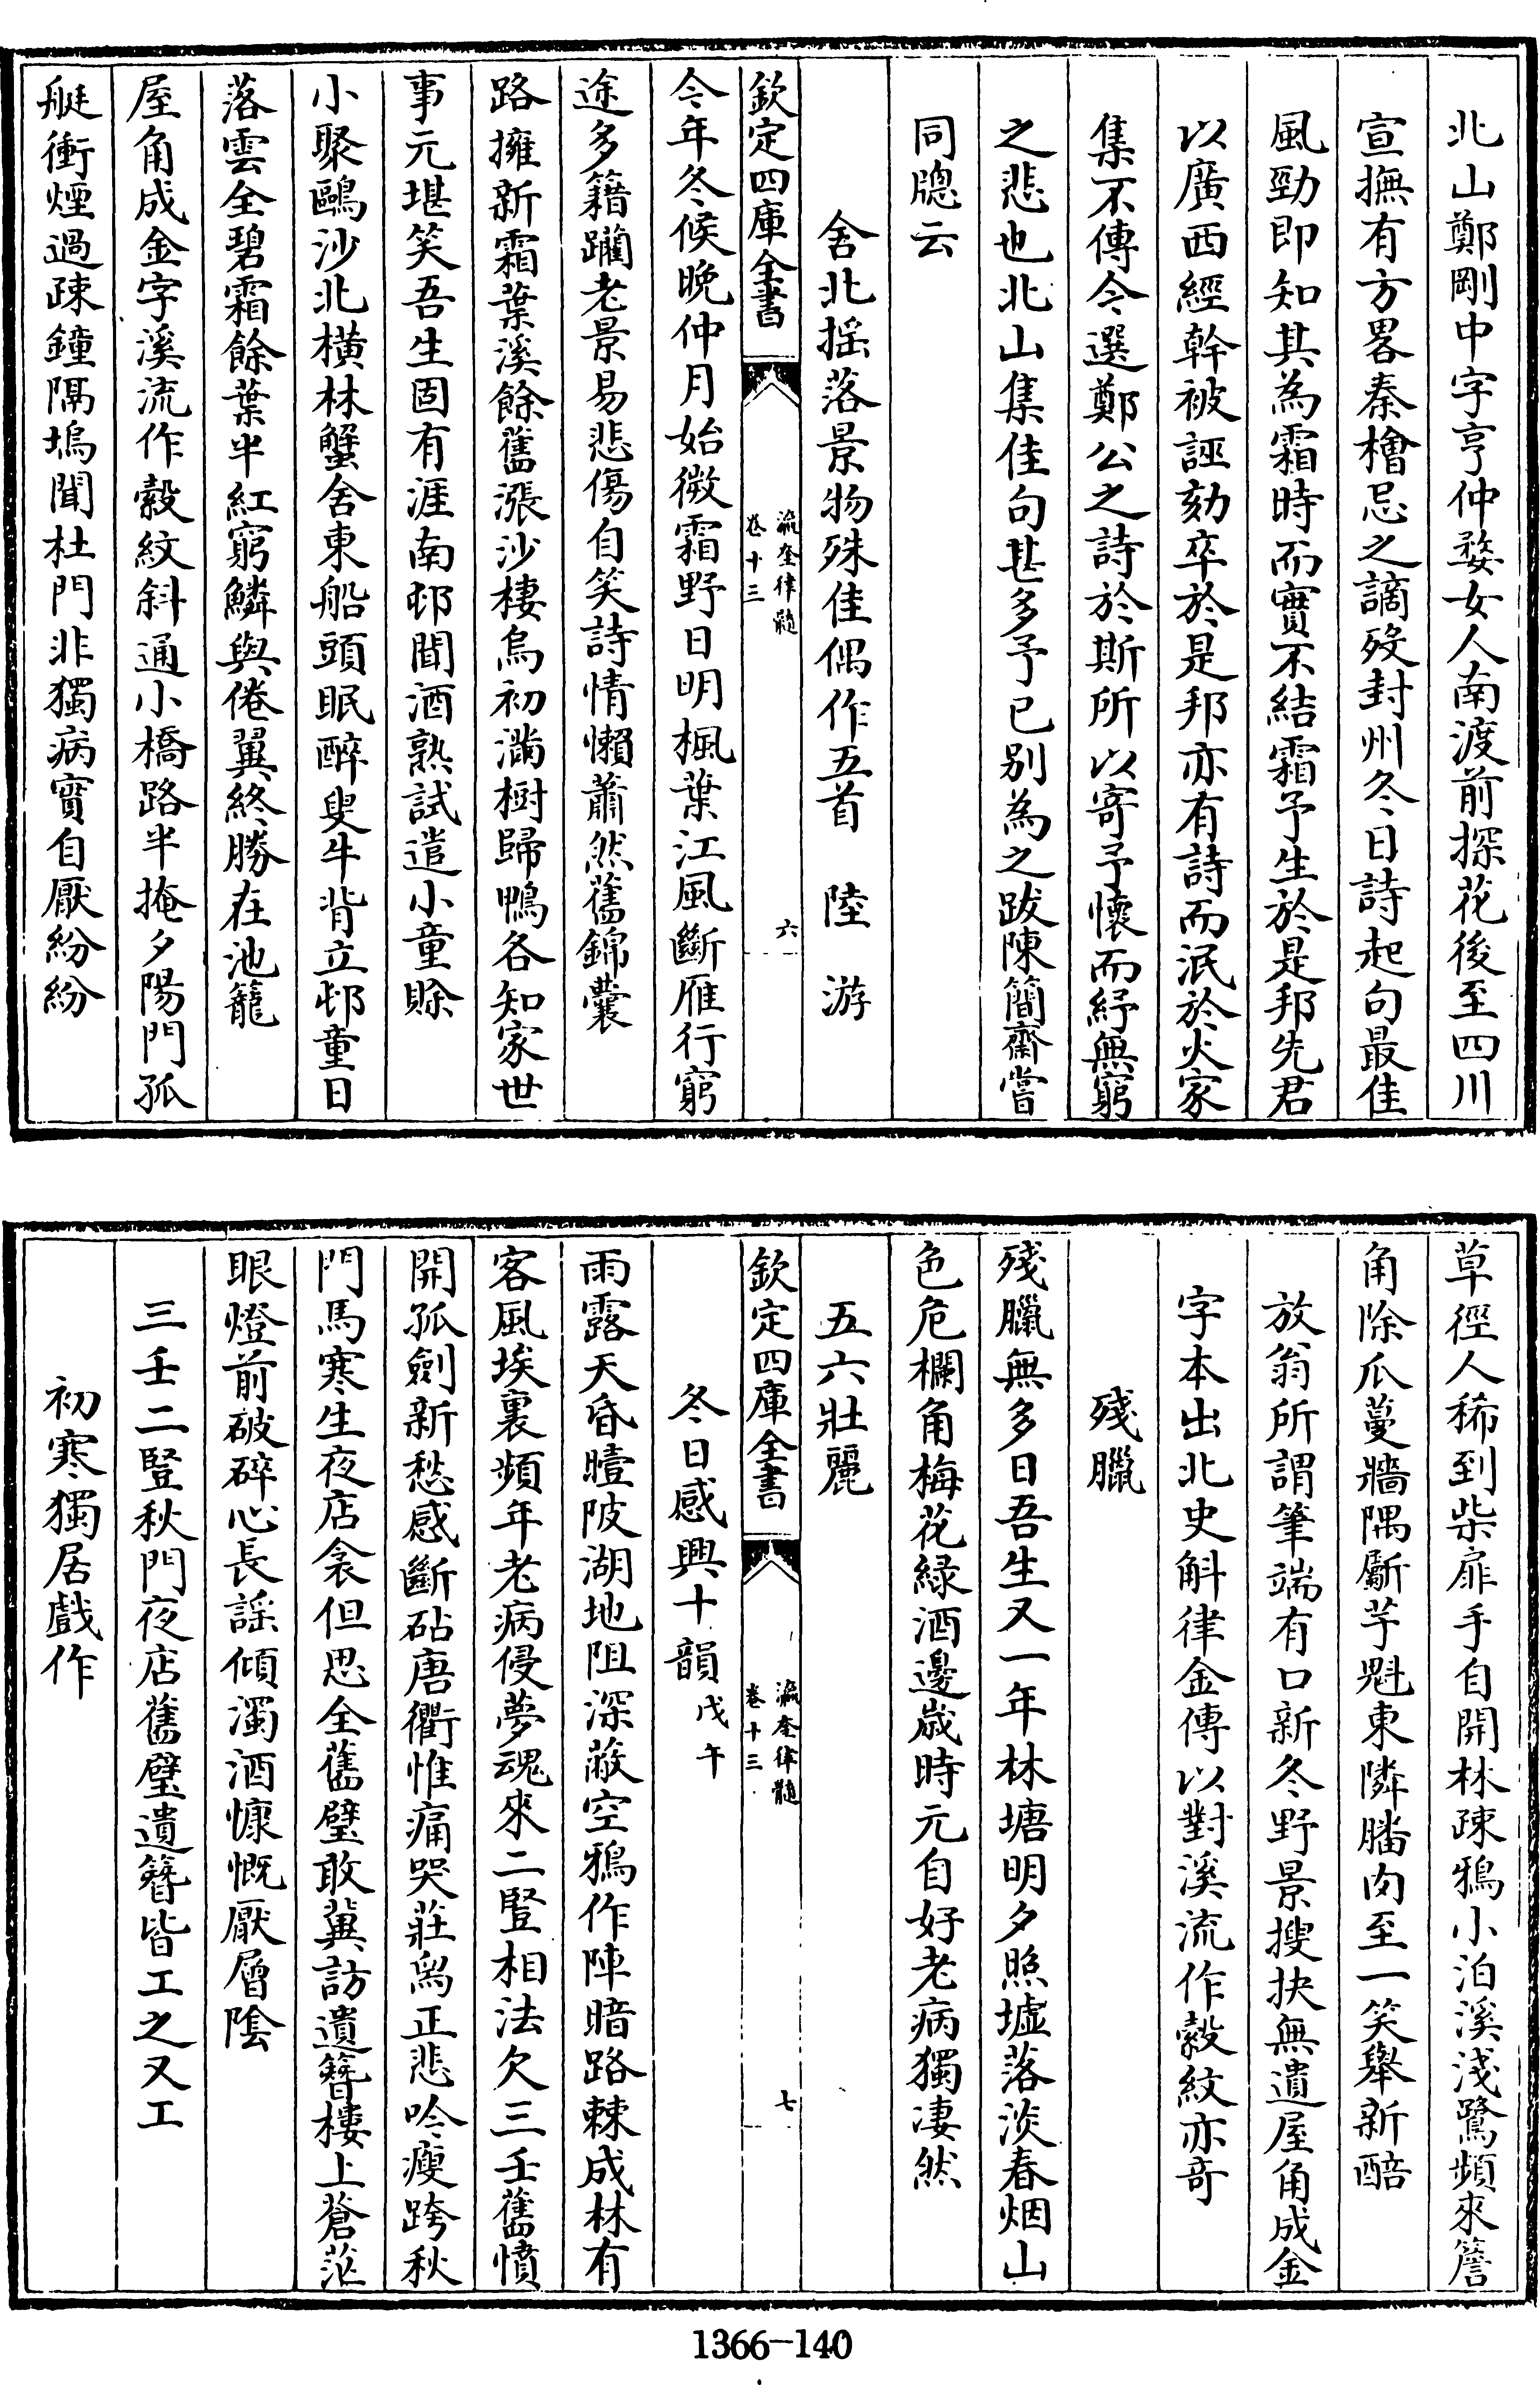 北山鄭剛中字亨仲婺女人南渡前探花後至四川
宣撫有方畧秦檜忌之謫歿封州冬日詩起句最佳
風勁即知其為霜時而實不結霜予生於是邦先君
以廣西經幹被誣劾卒於是邦亦有詩而泯於火家
集不傳今選鄭公之詩於斯所以寄予懷而紓無窮
之悲也北山集佳句甚多予已别為之跋陳簡齋嘗
同牕云
舍北搖落景物殊佳偶作五首　陸游
欽定四庫全書
瀛奎律髓
卷十三
六
今年冬候晚仲月始微霜野日明楓葉江風斷雁行窮
途多籍躪老景易悲傷自笑詩情懶蕭然舊錦囊
路擁新霜葉溪餘舊漲沙棲烏初滿樹歸鴨各知家世
事元堪笑吾生固有涯南邨聞酒熟試遣小童賒
小聚鷗沙北横林蟹舍東船頭眠醉叟牛背立邨童日
落雲全碧霜餘葉半紅窮鱗與倦翼終勝在池籠
屋角成金字溪流作縠紋斜通小橋路半掩夕陽門孤
艇衝煙過疎鐘隔塢聞杜門非獨病實自厭紛紛
草徑人稀到柴扉手自開林疎鴉小泊溪淺鷺頻來簷
角除瓜蔓牆隅斸芋魁東隣膰肉至一笑舉新醅
放翁所謂筆端有口新冬野景搜抉無遺屋角成金
字本出北史斛律金傳以對溪流作縠紋亦奇
殘臘
殘臘無多日吾生又一年林塘明夕照墟落淡春烟山
色危欄角梅花緑酒邊歲時元自好老病獨凄然
五六壯麗
欽定四庫全書
瀛奎律髓
卷十三
七
冬日感興十韻戊午
雨露天昏曀陂湖地阻深蔽空鴉作陣暗路棘成林有
客風埃裏頻年老病侵夢魂來二豎相法欠三壬舊憤
開孤劍新愁感斷砧唐衢惟痛哭莊舄正悲吟瘦跨秋
門馬寒生夜店衾但思全舊璧敢冀訪遺簪樓上蒼茫
眼燈前破碎心長謡傾濁酒慷慨厭層陰
三壬二豎秋門夜店舊璧遺簪皆工之又工
初寒獨居戲作
1366-140